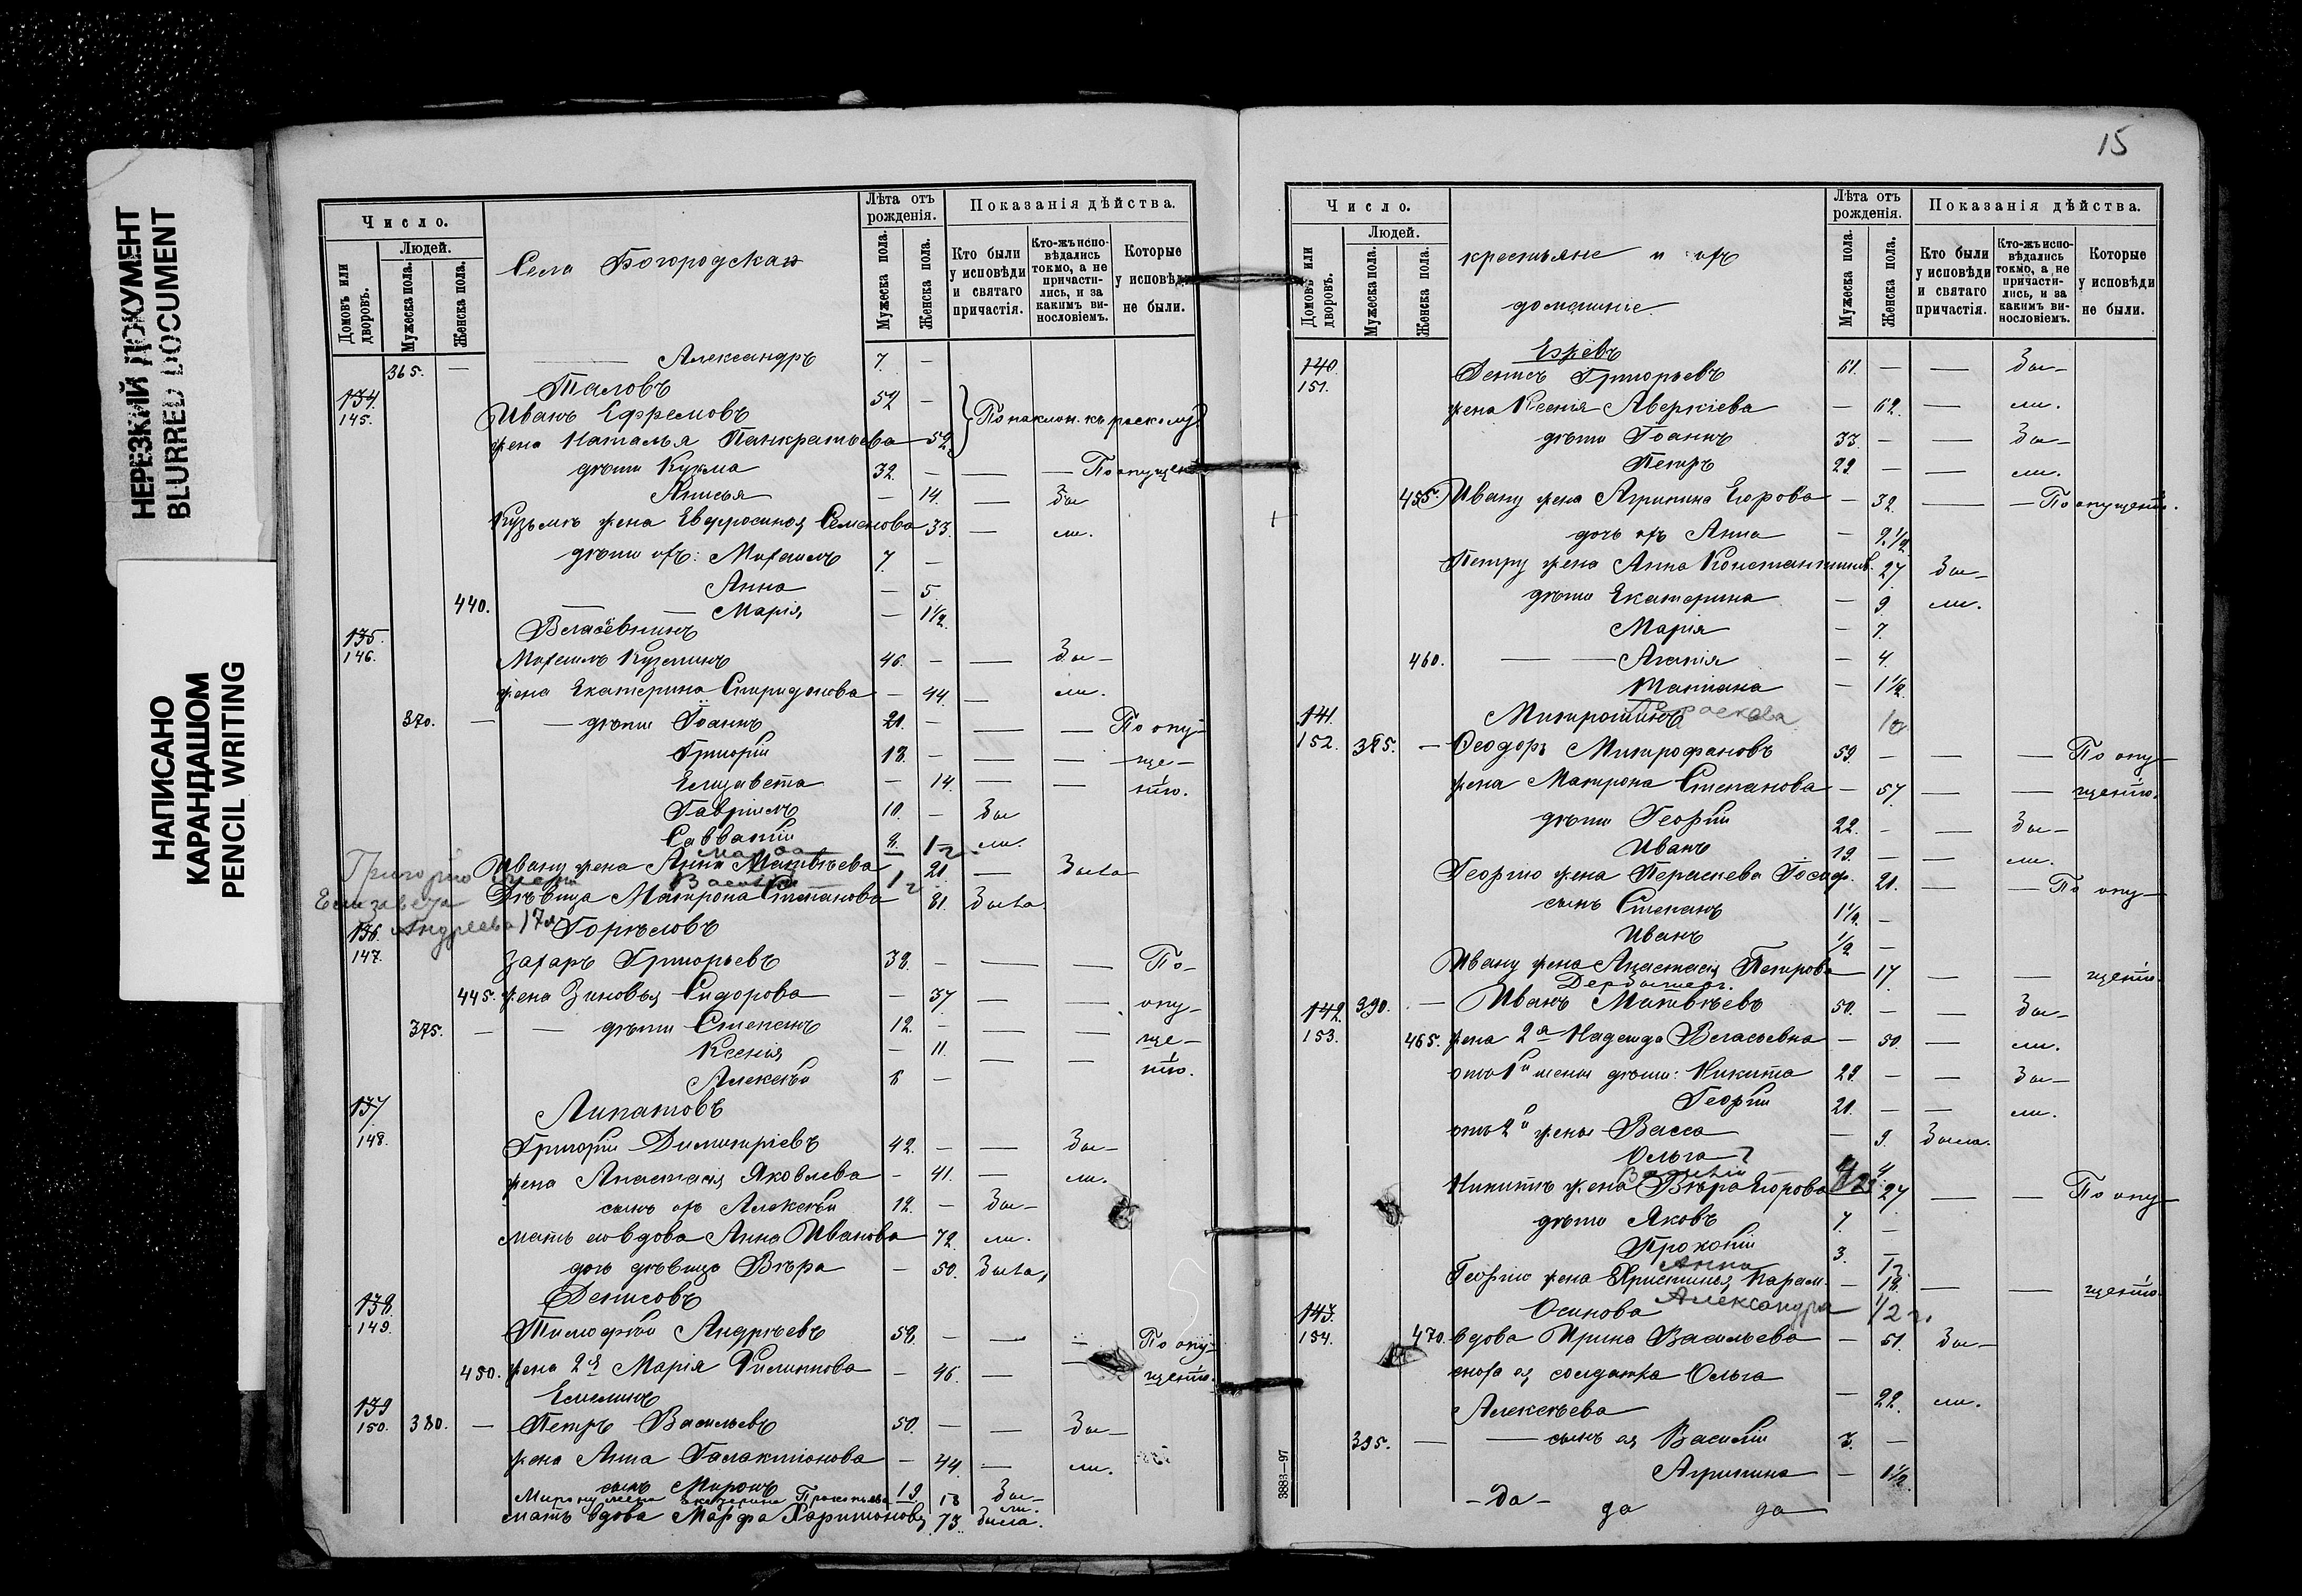 НЕРЕЗКИЙ ДОКУМЕНТ
BLURRED DOCUMENT
НАПИСАНО
КАРАНДАШОМ
PENCIL WRITING
Число.
Домовъ или дворовъ.
Людей.
Мужеска пола.
Женска пола.
Села Богородскаго
Лѣта отъ рожденія.
Мужеска пола.
Женска пола.
Показанія дѣйства.
Кто были у исповѣди и святаго причастія.
Кто-жъ исповѣдались токмо, а не причастились, и за какимъ винословіемъ.
Которые у исповѣди не были.
365. — Александръ 7. —
Таловъ
134. 145. Иванъ Ефремовъ 52 — По наклон. къ расколу
жена Наталья Панкратьева — 52
дѣти Кузма 32. — — — По опущен
Анисья — 14. — Бы
Кузьмы жена Евфросинія Семенова 33. — ли.
дѣти ихъ: Михаилъ 7. —
Анна — 5.
440. — — Марія — 1 1/2.
135. Власёвнинъ
146. Михаилъ Кузминъ 46. — — Бы —
жена Екатерина Спиридонова — 44. — ли.
370. — — дѣти Іоаннъ 21. — — — По опу-
Григорій 18. — — — ще-
Елизавета — 14. — — нію.
Гавріилъ 10. — Бы
Савватій 8. ли.
Марфа
Ивану жена Анна Матвѣева 21. — Была
Григорію жена
Василій
Дѣвица Матрона Степанова 81. Была.
Елизавета
Андреева 17
136. Горѣловъ
147. Захаръ Григорьевъ 38. — — — По-
445. жена Зиновья Сидорова — 37 — — опу-
375. — — дѣти Степанъ 12. — — — ще-
Ксенія — 11. — — нію.
Алексѣй 6 —
137. Липатовъ
148. Григорій Димитріевъ 42. — — Бы —
жена Анастасія Яковлева — 41. — ли.
сынъ ихъ Алексѣй 12. — Бы —
мать его вдова Анна Иванова 72. ли.
дочь дѣвица Вѣра — 50. Была,
138. Денисовъ
149. Тимофѣй Андреевъ 58. — — По опу-
450. жена 2я Марія Филиппова — 46. — — щенію.
139 Емелинъ
150. 380. — Петръ Васильевъ 50. — — Бы —
жена Анна Галактіонова — 44. — ли.
сынъ Миронъ 19 Бы —
Мирону жена Екатерина Прокопьева 18 ли.
мать вдова Марфа Харитонова 73. была.
15
Число.
Домовъ или дворовъ.
Людей.
Мужеска пола.
Женска пола.
крестьяне и ихъ
домашніе.
Лѣта отъ рожденія.
Мужеска пола.
Женска пола.
Показанія дѣйства.
Кто были у исповѣди и святаго причастія.
Кто-жъ исповѣдались токмо, а не причастились, и за какимъ винословіемъ.
Которые у исповѣди не были.
140. 151. Денисъ Григорьевъ 61. — — Бы —
жена Ксенія Аверкіева — 62. — ли.
дѣти Іоаннъ 33. — — Бы —
Петръ 29 — — ли.
455. Ивану жена Агрипина Егорова — 32. — — По опущенію.
дочь ихъ Анна — 2 1/2
Петру жена Анна Константинов. 27 Бы —
дѣти Екатерина — 9. ли.
Марія — 7.
460. — — Агапія — 4.
Татіана — 1 1/2
141. Митрошинъ
152. 385. — Ѳеодоръ Митрофановъ 59. — — — По опу-
жена Матрона Степанова — 57 — — щенію.
дѣти Георгій 22. — — Бы —
Иванъ 19. — — ли.
Георгію жена Параскева Іосиф. 21. — — По опу-
сынъ Степанъ 1 1/2. —
Иванъ 1/2 —
Ивану жена Анастасія Петрова 17 — — щенію.
142. 390. — Иванъ Матвѣевъ 50. — — Бы —
153. 465. жена 2я Надежда Власьевна — 50. — ли.
отъ 1й жены дѣти: Никита 29. — — Бы —
Георгій 21. — — ли.
отъ 2й жены Васса — 9. Была.
Ольга 4
Василій
Никитѣ жена Вѣра Егорова 27 — — По опу-
дѣти Яковъ 7. —
Прокопій 3. —
Анна
Георгію жена Христинья Парам. — 18. — — щенію.
143. Осипова
Александра 1/2 г.
154. 470. вдова Ирина Васильева — 51. Бы —
сноха ея солдатка Ольга
Алексѣева — 22. ли.
395. — — сынъ ея Василій 3. —
Агрипина — 1 1/2.
— да — да да
3883—97